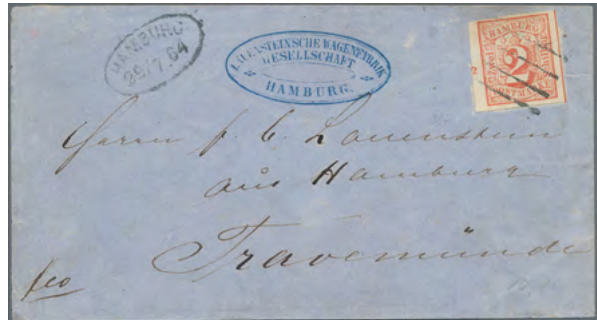 HAMBURG
29/7 64
LAUENSTEINSCHE WAGENFABRIK
GESELLSCHAFT
HAMBURG.
HAMBURG
2
POSTMARKE
2
Herrn J. C. Lauenstein
aus Hamburg
Travemünde
fco